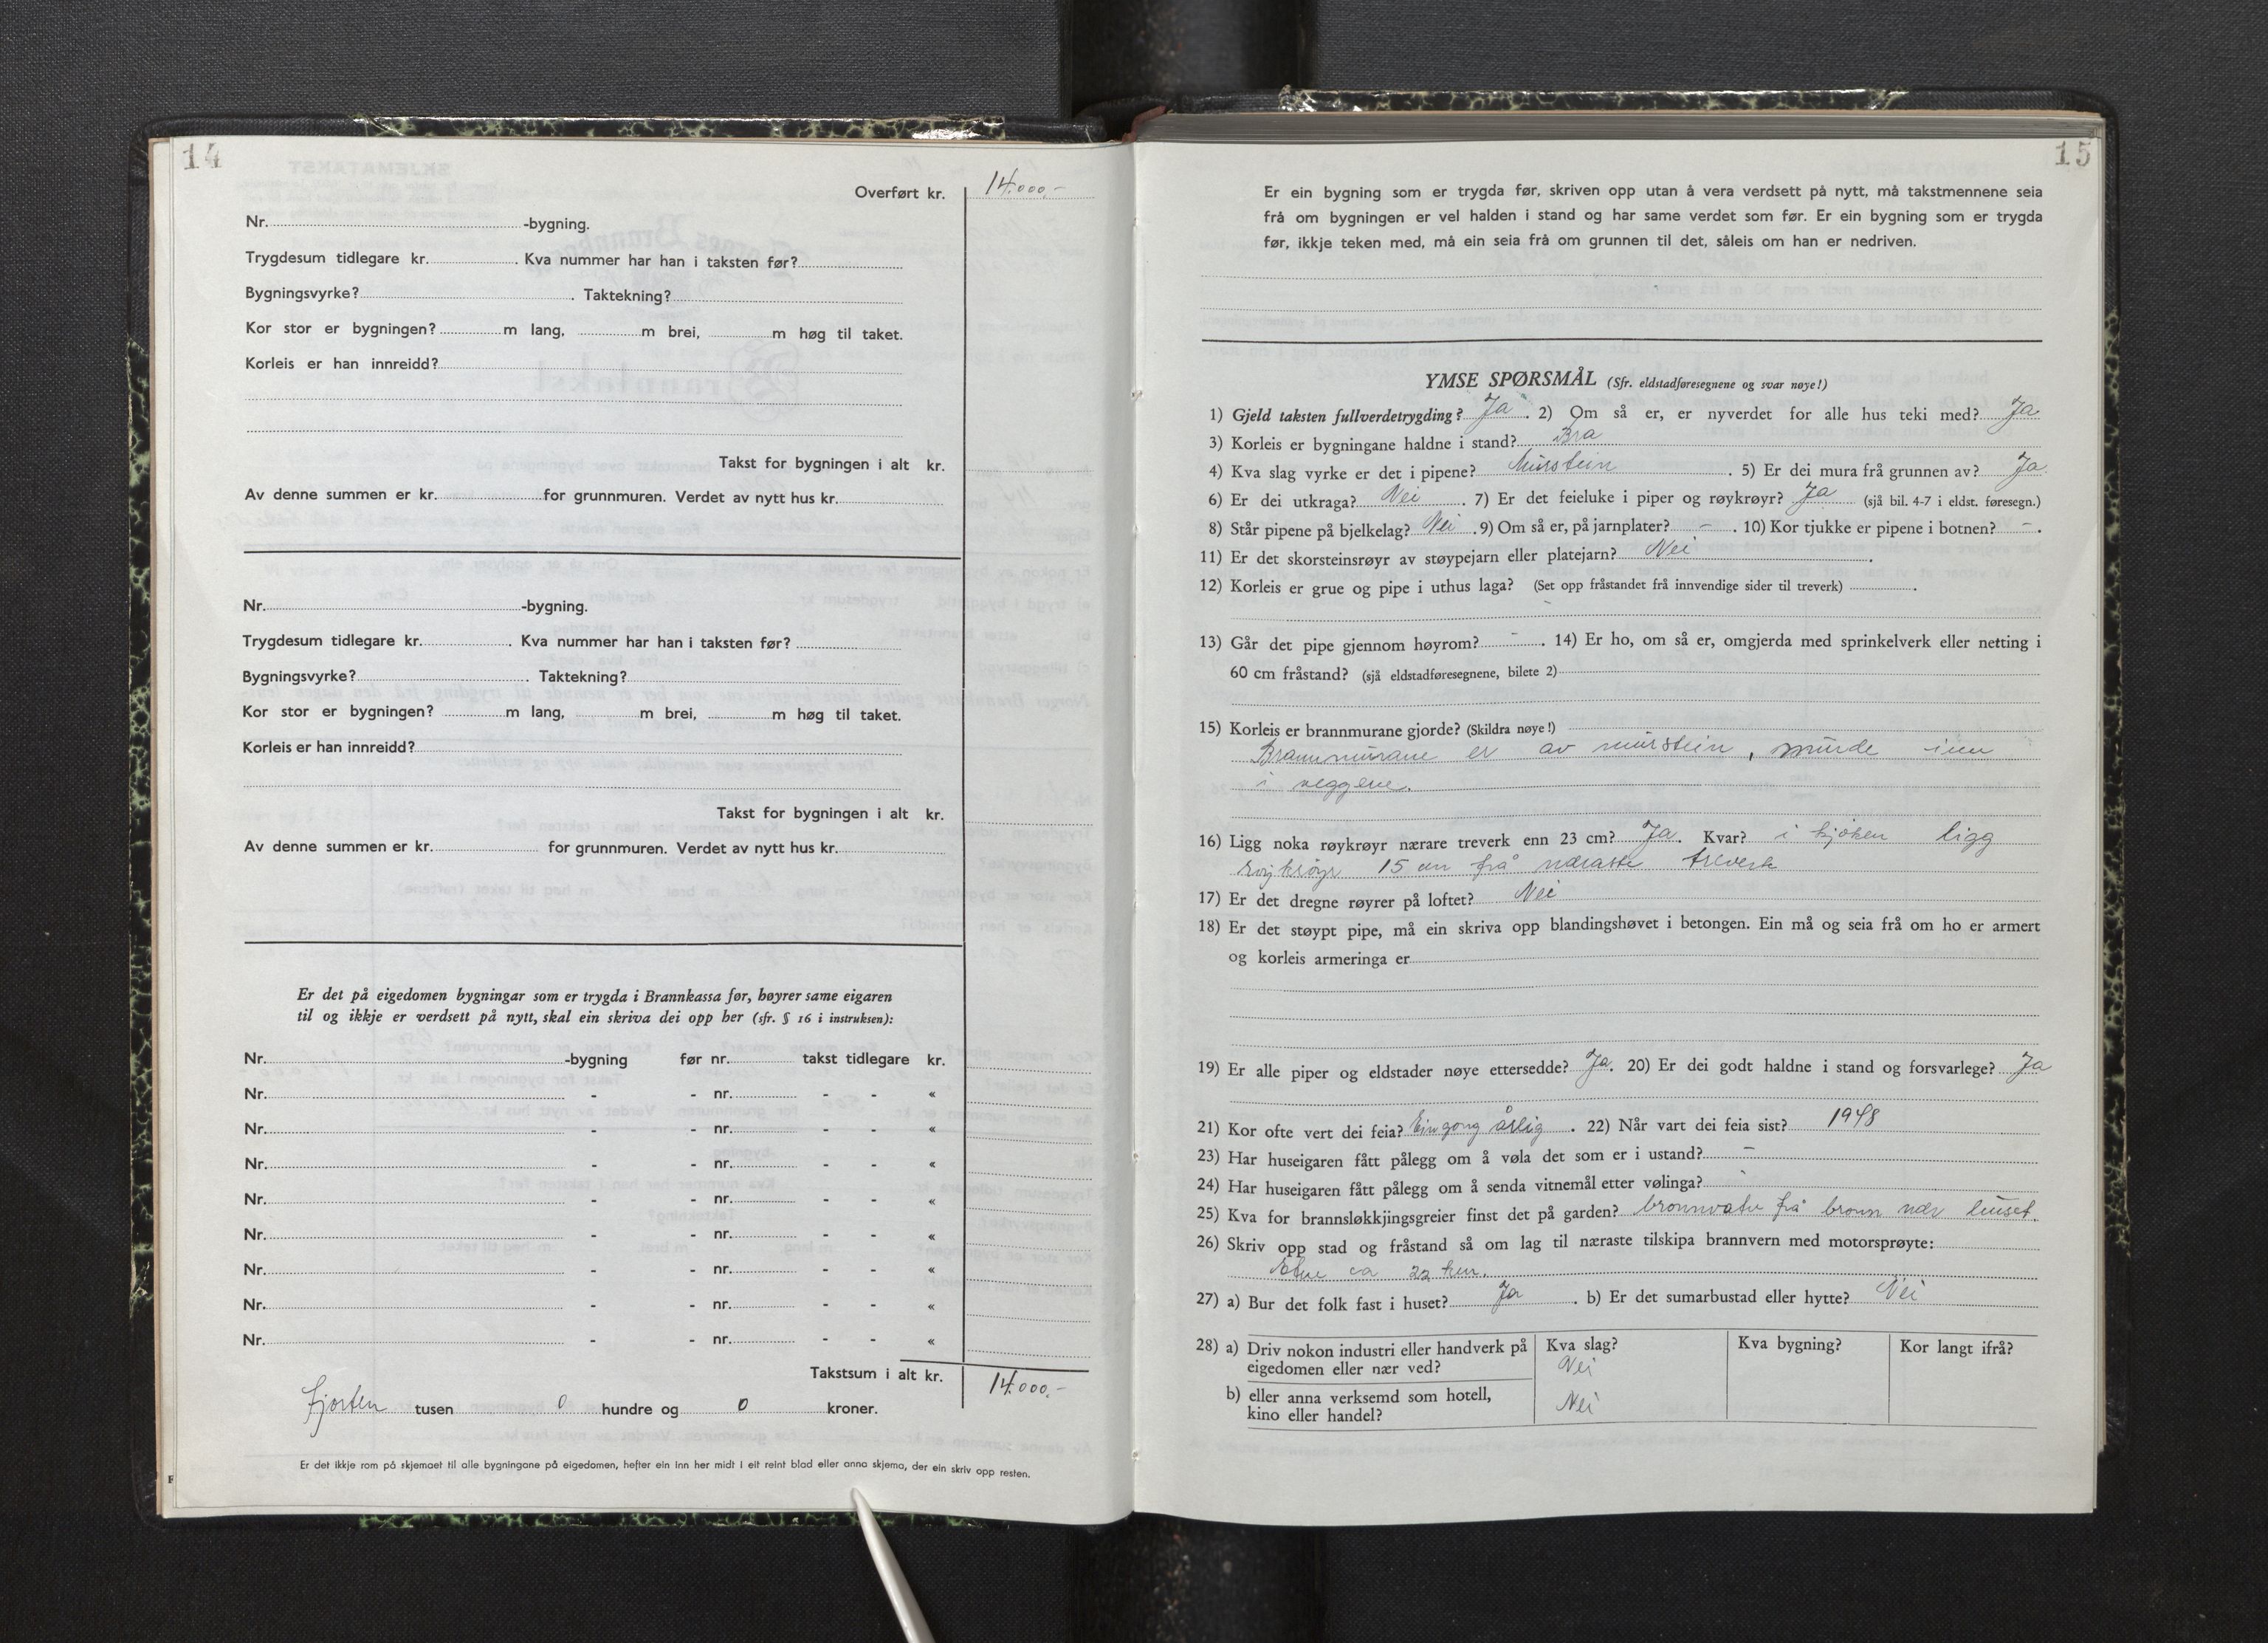 14
Overført kr. 14.000.-
Nr. -bygning.
Trygdesum tidlegare kr. . Kva nummer har han i taksten før?
Bygningsvyrke? . Taktekning?
Kor stor er bygningen? m lang, m brei, m høg til taket.
Korleis er han innreidd?
Takst for bygningen i alt kr.
Av denne summen er kr. for grunnmuren. Verdet av nytt hus kr.
Nr. -bygning.
Trygdesum tidlegare kr. . Kva nummer har han i taksten før?
Bygningsvyrke? . Taktekning?
Kor stor er bygningen? m lang, m brei, m høg til taket.
Korleis er han innreidd?
Takst for bygningen i alt kr.
Av denne summen er kr. for grunnmuren. Verdet av nytt hus kr.
Er det på eigedomen bygningar som er trygda i Brannkassa før, høyrer same eigaren
til og ikkje er verdsett på nytt, skal ein skriva dei opp her (sfr. § 16 i instruksen):
Nr. -bygning før nr. takst tidlegare kr.
Nr. - - nr. - - «
Nr. - - nr. - - «
Nr. - - nr. - - «
Nr. - - nr. - - «
Nr. - - nr. - - «
Nr. - - nr. - - «
Nr. - - nr. - - «
Nr. - - nr. - - «
Takstsum i alt kr. 14.000.-
fjorten tusen 0 hundre og 0 kroner.
Er det ikkje rom på skjemaet til alle bygningane på eigedomen, hefter ein inn her midt i eit reint blad eller anna skjema, der ein skriv opp resten.
F
15
Er ein bygning som er trygda før, skriven opp utan å vera verdsett på nytt, må takstmennene seia
frå om bygningen er vel halden i stand og har same verdet som før. Er ein bygning som er trygda
før, ikkje teken med, må ein seia frå om grunnen til det, såleis om han er nedriven.
YMSE SPØRSMÅL (Sfr. eldstadføresegnene og svar nøye!)
1) Gjeld taksten fullverdetrygding? Ja . 2) Om så er, er nyverdet for alle hus teki med? Ja
3) Korleis er bygningane haldne i stand? Bra
4) Kva slag vyrke er det i pipene? Murstein . 5) Er dei mura frå grunnen av? Ja
6) Er dei utkraga? Nei . 7) Er det feieluke i piper og røykrøyr? Ja (sjå bil. 4-7 i eldst. føresegn.)
8) Står pipene på bjelkelag? Nei . 9) Om så er, på jarnplater? - . 10) Kor tjukke er pipene i botnen? - .
11) Er det skorsteinsrøyr av støypejarn eller platejarn? Nei .
12) Korleis er grue og pipe i uthus laga? (Set opp fråstandet frå innvendige sider til treverk) .
-
13) Går det pipe gjennom høyrom? - . 14) Er ho, om så er, omgjerda med sprinkelverk eller netting i
60 cm fråstand? (sjå eldstadføresegnene, bilete 2)
15) Korleis er brannmurane gjorde? (Skildra nøye!)
Brannmurane er av murstein, murde inn
i veggene.
16) Ligg noka røykrøyr nærare treverk enn 23 cm? Ja. Kvar? i kjøken ligg
røykrøyr 15 cm frå næraste treverk
17) Er det dregne røyrer på loftet? Nei
18) Er det støypt pipe, må ein skriva opp blandingshøvet i betongen. Ein må og seia frå om ho er armert
og korleis armeringa er
19) Er alle piper og eldstader nøye ettersedde? Ja. 20) Er dei godt haldne i stand og forsvarlege? Ja
21) Kor ofte vert dei feia? Ein gong årlig . 22) Når vart dei feia sist? 1948
23) Har huseigaren fått pålegg om å vøla det som er i ustand? -
24) Har huseigaren fått pålegg om å senda vitnemål etter vølinga? -
25) Kva for brannsløkkjingsgreier finst det på garden? bronnvatn frå bronn nær huset.
26) Skriv opp stad og fråstand så om lag til næraste tilskipa brannvern med motorsprøyte:
Etne ca 22 km.
27) a) Bur det folk fast i huset? Ja . b) Er det sumarbustad eller hytte? Nei
28) a) Driv nokon industri eller handverk på Kva slag? Kva bygning? Kor langt ifrå?
eigedomen eller nær ved? Nei
b) eller anna verksemd som hotell, Nei
kino eller handel?